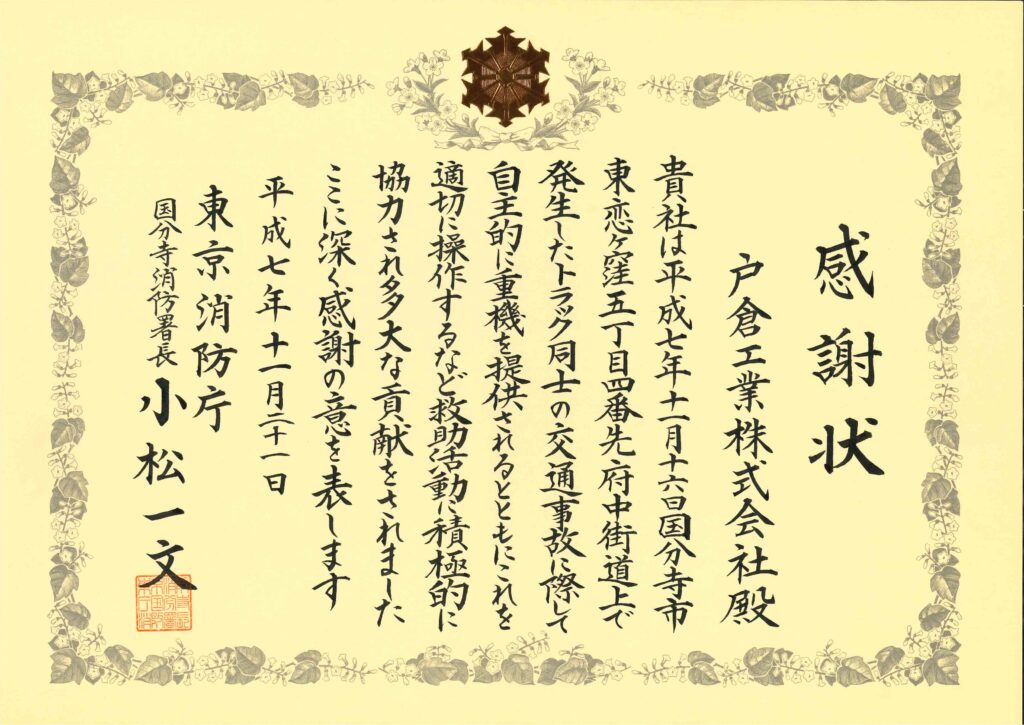 感謝状
戸倉工業株式会社殿
貴社は平成七年十一月十六日国分寺市
東恋ヶ窪五丁目四番先府中街道上で
発生したトラック同士の交通事故に際して
自主的に重機を提供されるとともにこれを
適切に操作するなど救助活動に積極的に
協力され多大な貢献をされました
ここに深く感謝の意を表します
平成七年十一月二十一日
東京消防庁
国分寺消防署長 小松一文